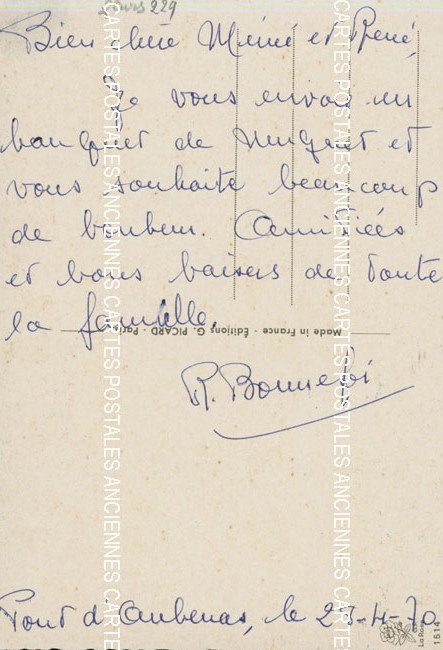 Divers 229
Bien chère Mémé et René,
Je vous envoie un
bouquet de muguet et
vous souhaite beaucoup
de bonheur. Amitiés
et bons baisers de toute
la famille.
Made in France - Éditions G. PICARD - Paris
R. Bonnefoi
Pont d'Aubenas, le 27-4-70
La Rose
1514
CARTES POSTALES ANCIENNES CARTES POSTALES ANCIENNES CARTE
CARTES POSTALES ANCIENNES CARTES POSTALES ANCIENNES CARTE